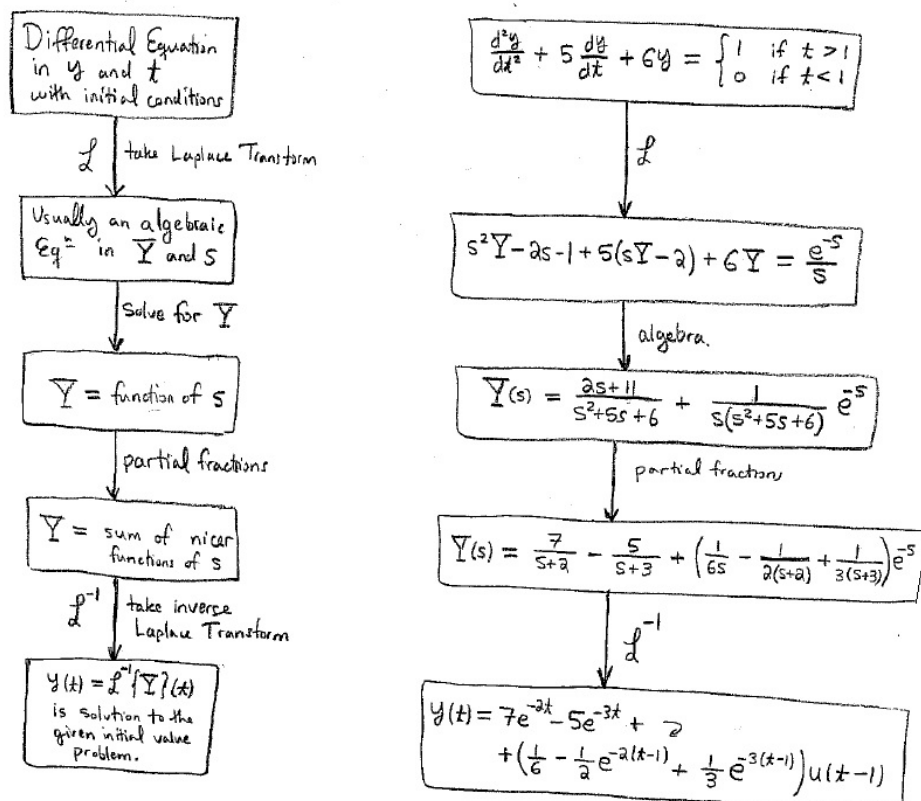 Differential Equation
in y and t
with initial conditions
ℒ take Laplace Transform
Usually an algebraic
Eqⁿ in Y and s
Solve for Y
Y = function of s
partial fractions
Y = sum of nicer
functions of s
ℒ⁻¹ take inverse
Laplace Transform
y(t) = ℒ⁻¹{Y}(t)
is solution to the
given initial value
problem.
d²y/dt² + 5 dy/dt + 6y = { 1 if t > 1
0 if t < 1
ℒ
s²Y - 2s - 1 + 5(sY - 2) + 6Y = e⁻ˢ/s
algebra.
Y(s) = (2s+11)/(s²+5s+6) + 1/(s(s²+5s+6)) e⁻ˢ
partial fractions
Y(s) = 7/(s+2) - 5/(s+3) + (1/(6s) - 1/(2(s+2)) + 1/(3(s+3)))e⁻ˢ
ℒ⁻¹
y(t) = 7e⁻²ᵗ - 5e⁻³ᵗ +
+ (1/6 - 1/2 e^(-2(t-1)) + 1/3 e^(-3(t-1))) u(t-1)